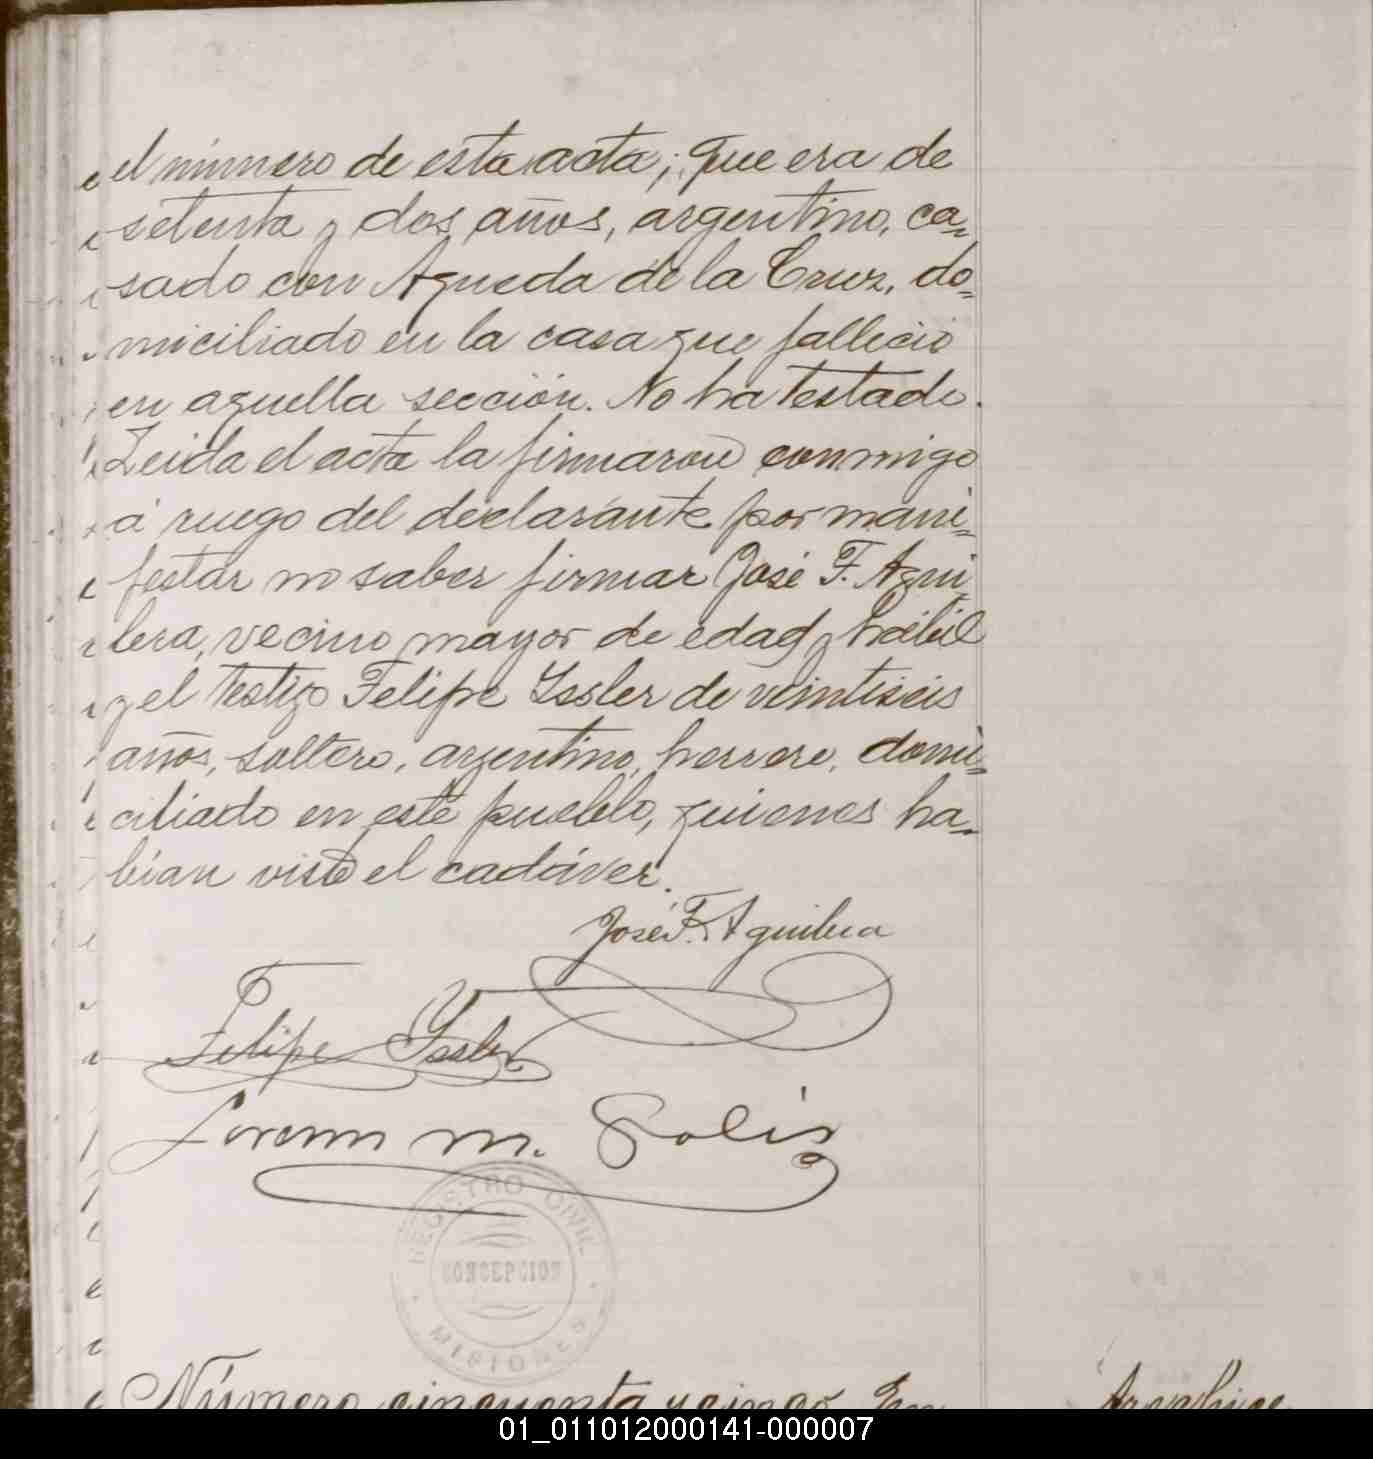 el número de esta acta; que era de
setenta y dos años, argentino, ca=
sado con Agueda de la Cruz, do=
miciliado en la casa que fallició
en aquella sección. No ha testado.
Leida el acta la firmaron conmigo
á ruego del declarante por mani=
festar no saber firmar José F. Agui=
lera, vecino mayor de edad y hábil
y el testigo Felipe Yssler de veintiseis
años, soltero, argentino, herrero, domi=
ciliado en este pueblo, quienes ha=
bían visto el cadáver.
José F. Aguilera
Felipe Yssler
Lorenzo M. Solis
REGISTRO CIVIL
CONCEPCION
MISIONES
Número cincuenta y cinco. En
01_011012000141-000007